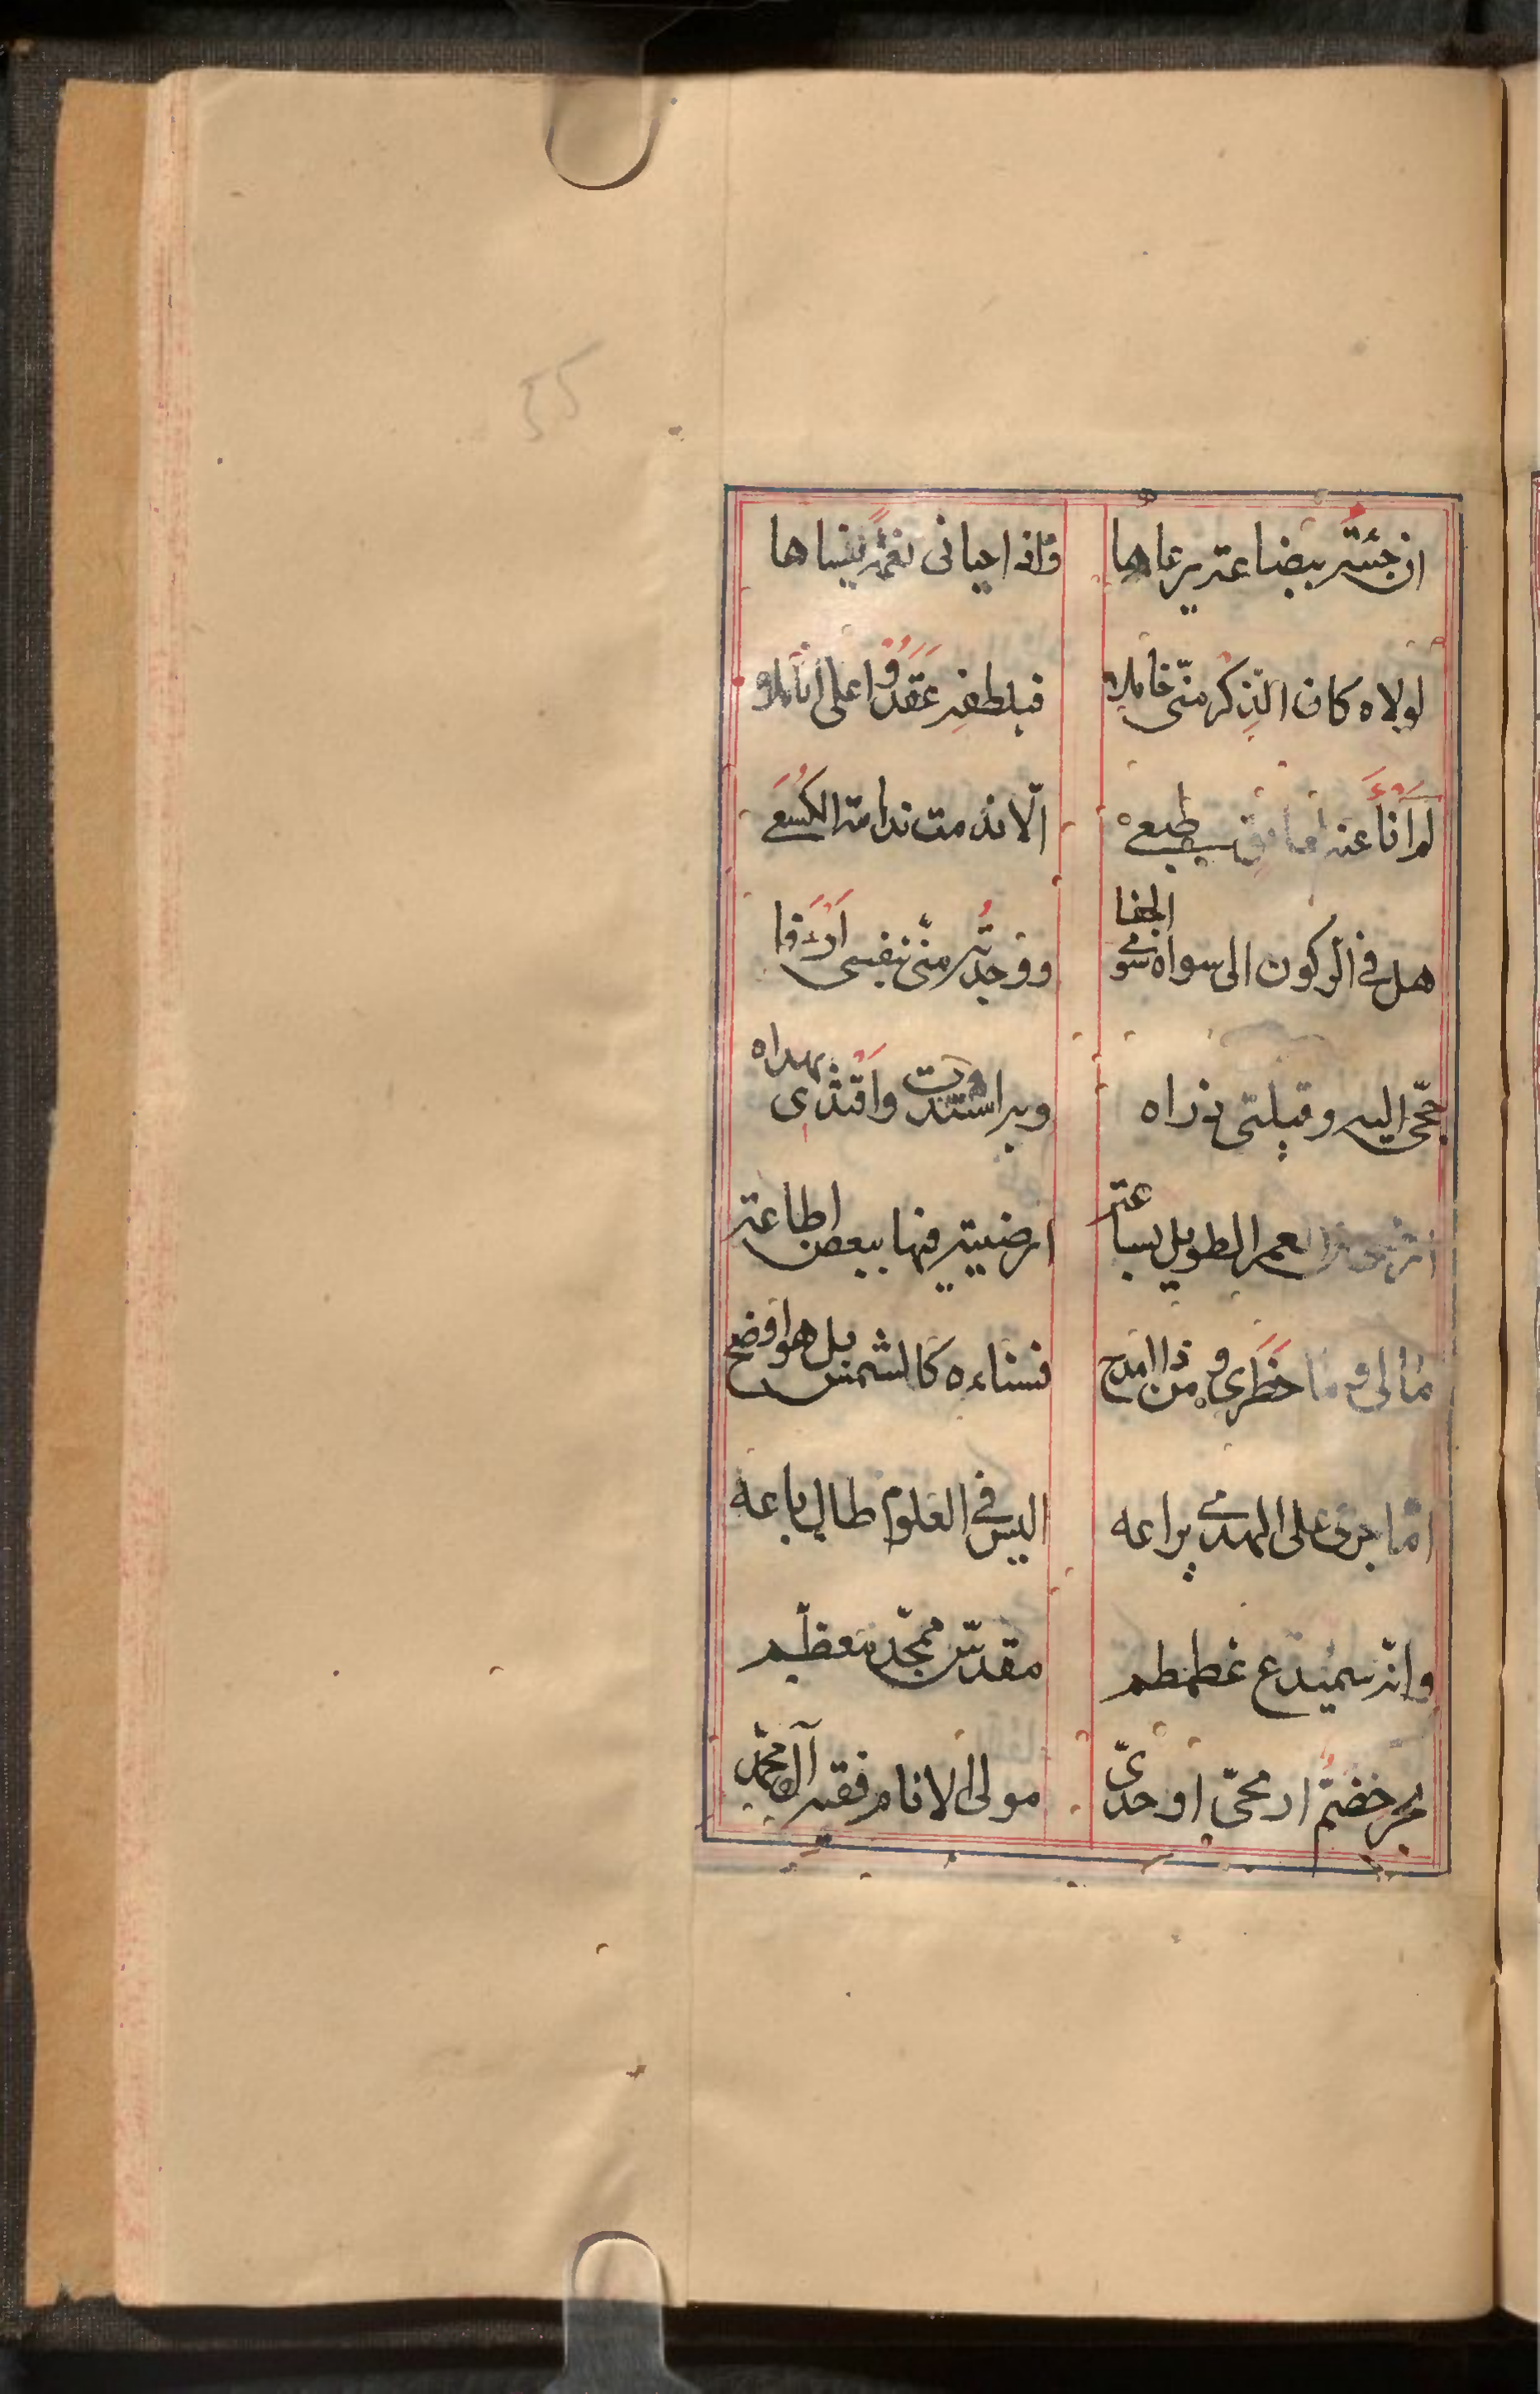 55
ان جئته ببضاعة يرعاها واذا حباني نعمة ينساها
لولاه كان الذكر منّي خاملا فبلطفه عقدوا على اناملا
لم أنا عنه لسقيطي الّا ندمت ندامة الكُسعي
هل في الركون الى سواه سوى الجفا ووجدته منّي بنفسي ارءفا
حجّي اليه وقبلتي ذراه وبه اشتدت واقتدى بهداه
العمر الطويل بساعته ارضيته فيها ببعض اطاعته
مالي وما خطري ومن ذا امدح فسناءه كالشمس بل هو اوضح
امّا جرى على المهدي يراعه اليس في العلوم طال باعه
وانه سميدع غطمطم مقدّس ممجّد معظّم
بحر خضمّ اريحيّ اوحديّ مولى الانام فقيه آل محمّد